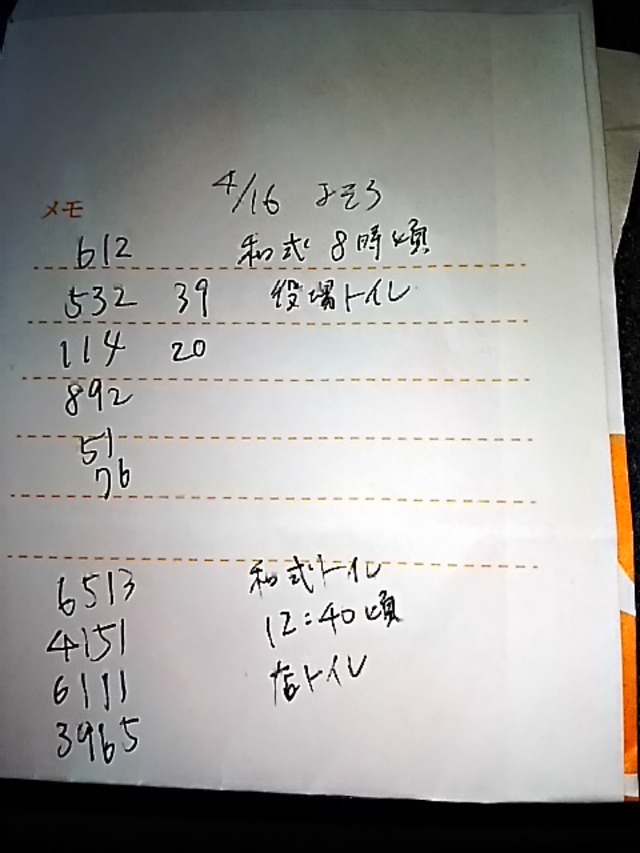 4/16 よそろ
メモ
612 和式 8時頃
532 39 役場トイレ
114 20
892
51
76
6513 和式トイレ
4151 12:40頃
6111 店トイレ
3965